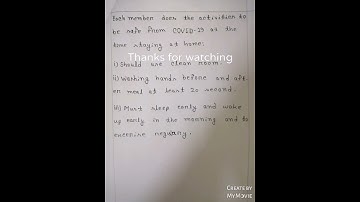 Each member does the activities to
be safe from COVID-19 at the
time staying at home:
Thanks for watching
i) Should use clean room.
ii) Washing hands before and aft-
er meal at least 20 second.
iii) Must sleep early and wake
up early in the morning and to
exercise regularly.
CREATE BY
MY MOVIE